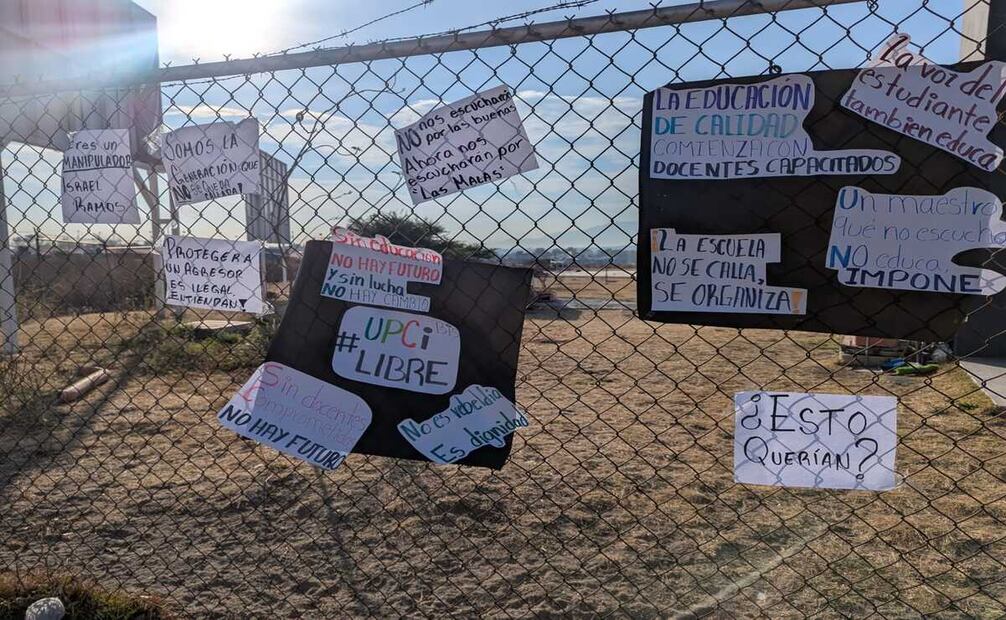 Eres un
MANIPULADOR
ISRAEL
RAMOS
SOMOS LA
GENERACIÓN QUE
NO SE QUEDA
CALLADA!
PROTEGER A
UN AGRESOR
ES ILEGAL
ENTIENDAN!
NO nos escucharon
por las buenas
Ahora nos
escucharan por
"Las MALAS"
Sin educación
NO HAY FUTURO
y sin lucha
NO HAY CAMBIO
UPCi
#LIBRE
Sin docentes
NO HAY FUTURO
No es rebeldía
Es dignidad
LA EDUCACIÓN
DE CALIDAD
COMIENZA CON
DOCENTES CAPACITADOS
La voz del
estudiante
tambien educa
¡LA ESCUELA
NO SE CALLA,
SE ORGANIZA!
Un maestro
que no escucha
NO educa,
IMPONE
¿ESTO
QUERÍAN?